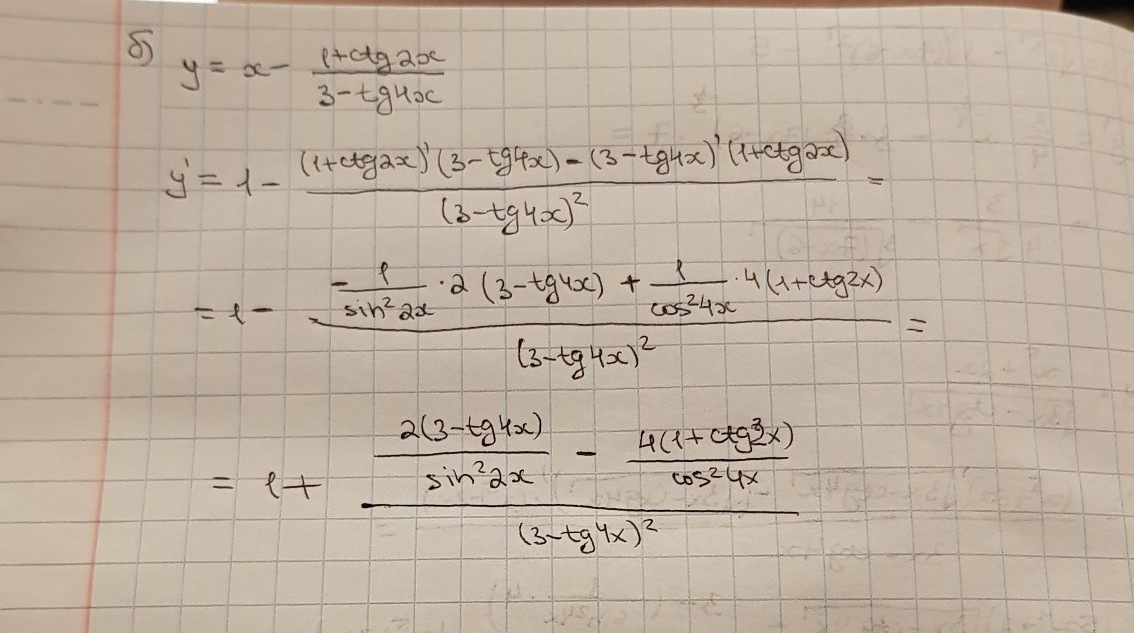 б) y = x - (1+ctg2x)/(3-tg4x)
y' = 1 - ((1+ctg2x)'(3-tg4x) - (3-tg4x)'(1+ctg2x))/(3-tg4x)² =
= 1 - (-1/sin²2x · 2(3-tg4x) + 1/cos²4x · 4(1+ctg2x))/(3-tg4x)² =
= 1 + (2(3-tg4x)/sin²2x - 4(1+ctg2x)/cos²4x)/(3-tg4x)²